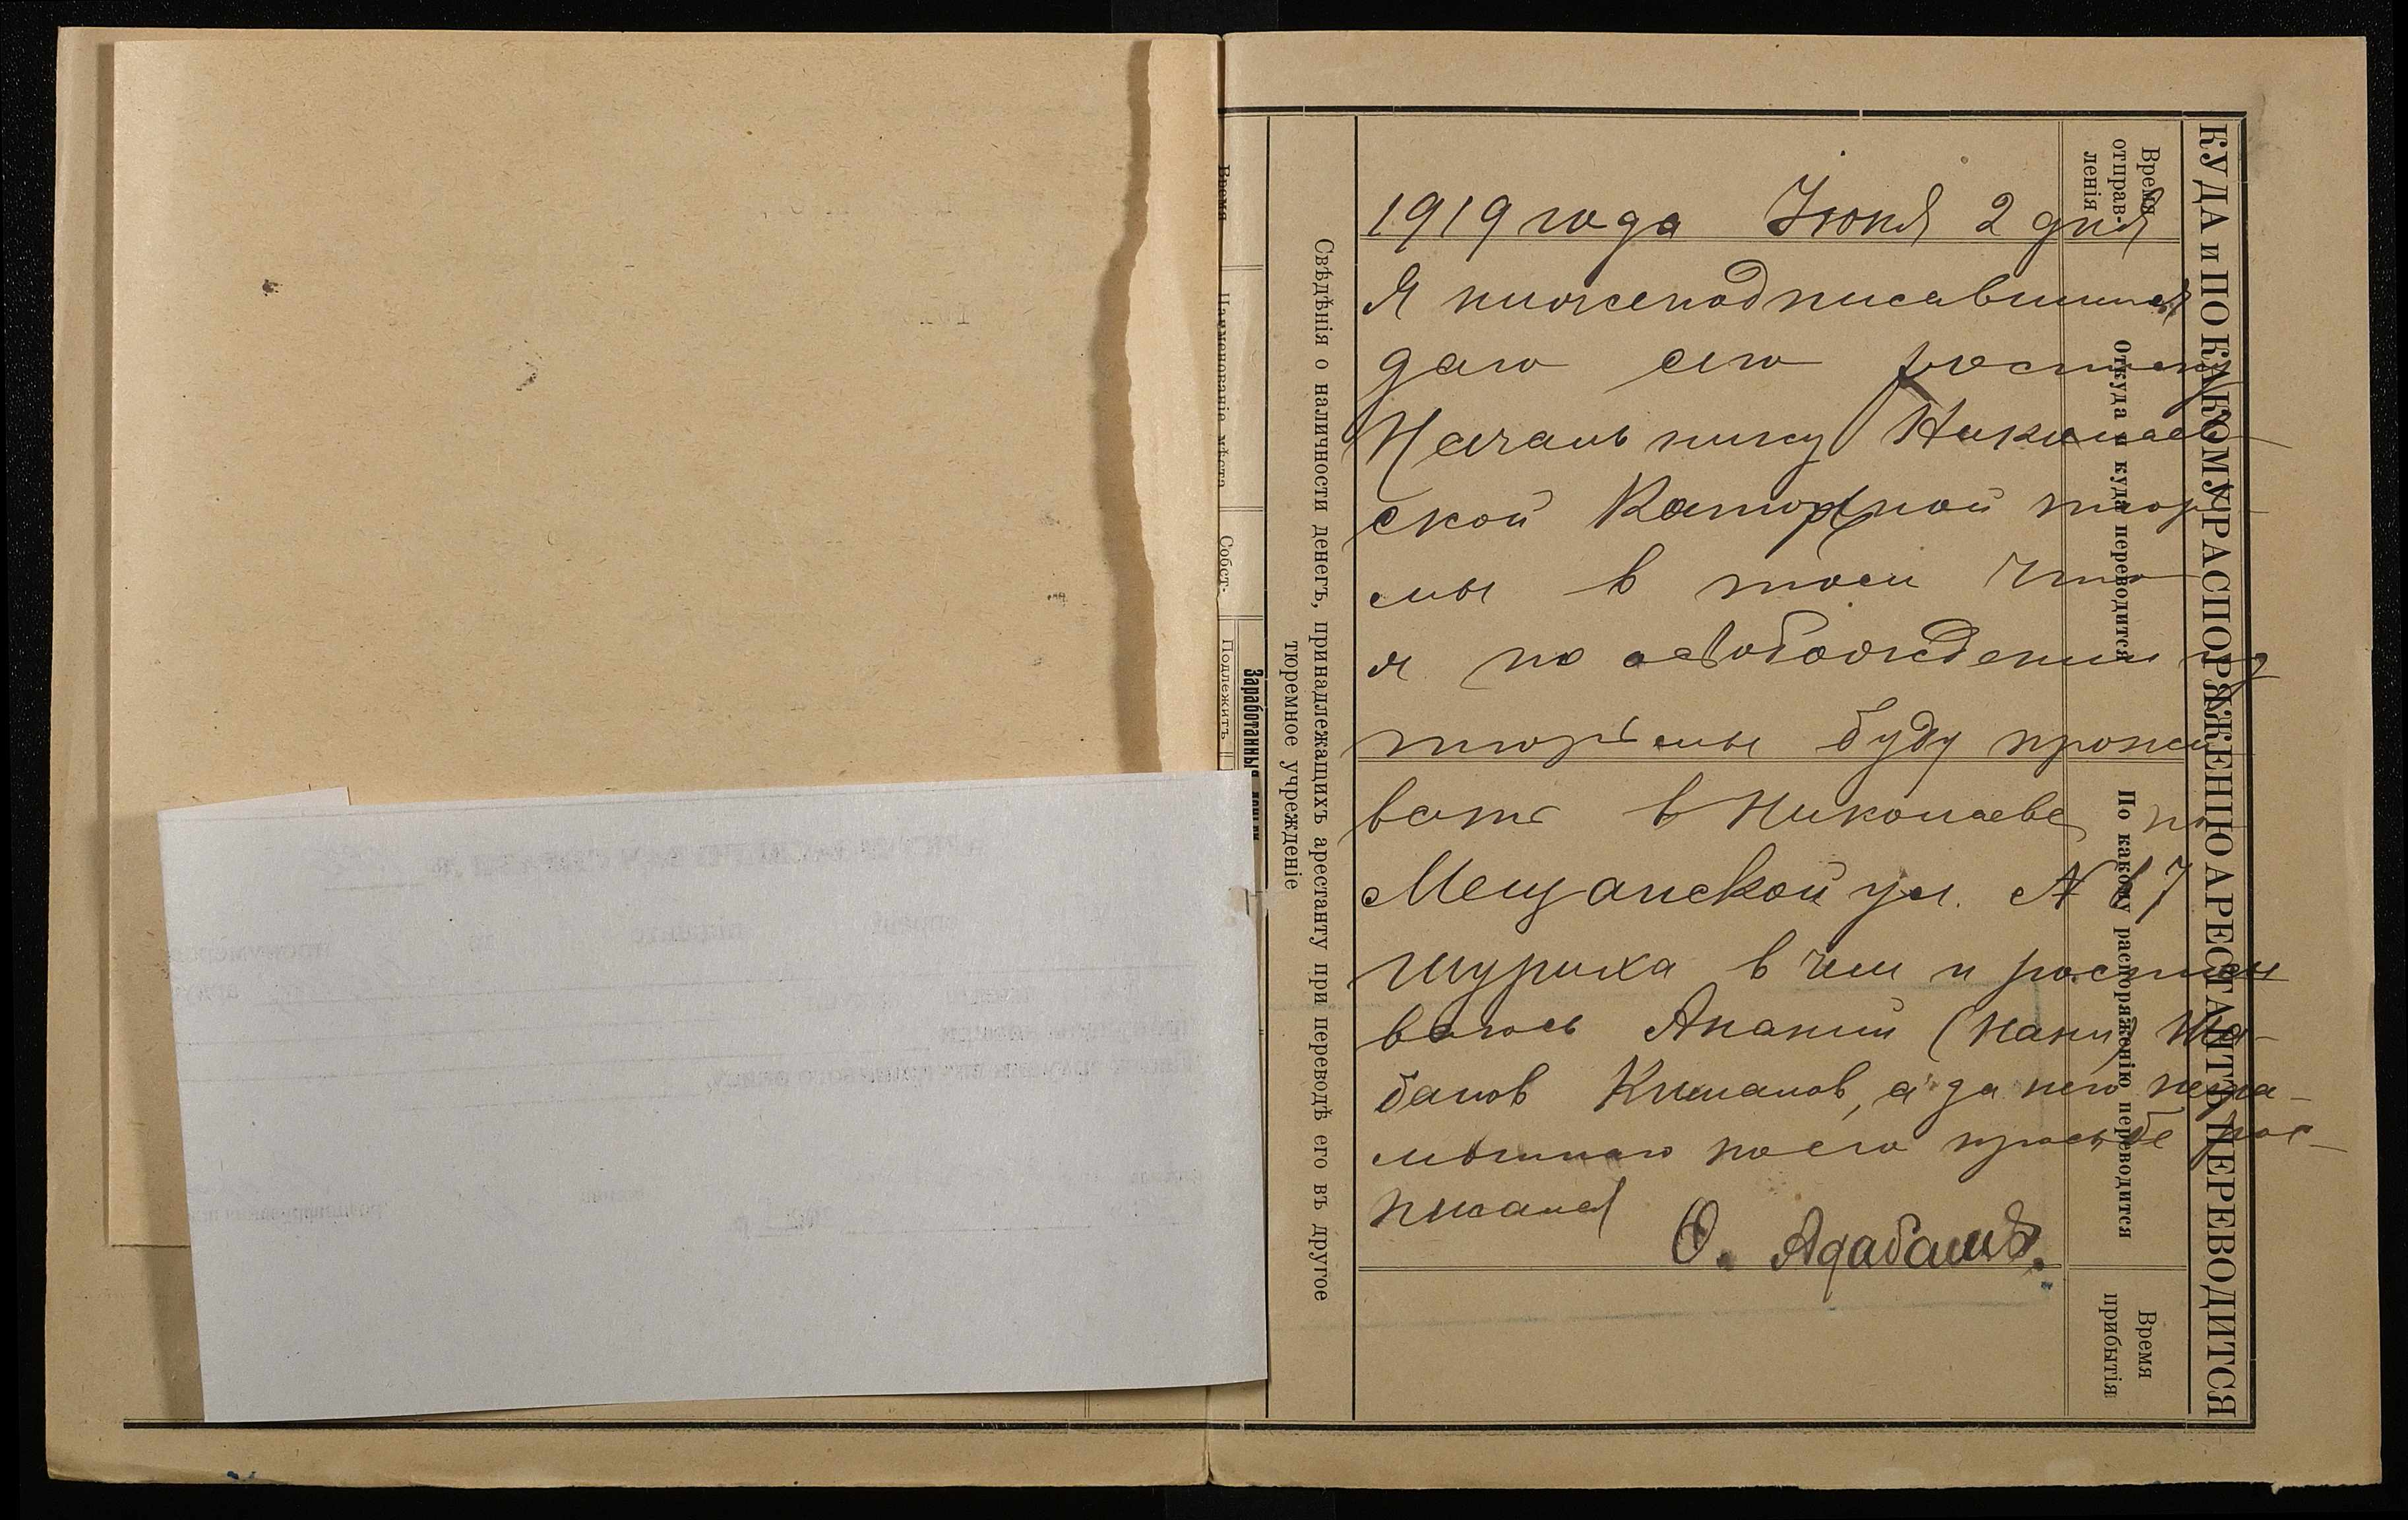 КУДА и ПО КАКОМУ РАСПОРЯЖЕНІЮ АРЕСТАНТЪ ПЕРЕВОДИТСЯ
Время
отправ-
ленія
Откуда и куда переводится
По какому распоряженію переводится
Время
прибытія
1919 года Июня 2 дня
Я нижеподписавшийся
даю сию
Начальнику Николаев-
ской Каторжной тюрь-
мы в том что
я по освобождении из
тюрьмы буду прожи
вать в Николаеве по
Мещанской ул. № 17
Шуриха в чем и росписы
ваюсь Ананий (Нани) Ша-
банов Киманов, а за него негра-
мотного по его просьбе рос-
писался
О. Адабашъ.
Свѣдѣнія о наличности денегъ, принадлежащихъ арестанту при переводѣ его въ другое
тюремное учрежденіе
Заработанныя
Время
Наименованіе мѣста
Собст-
Подлежитъ